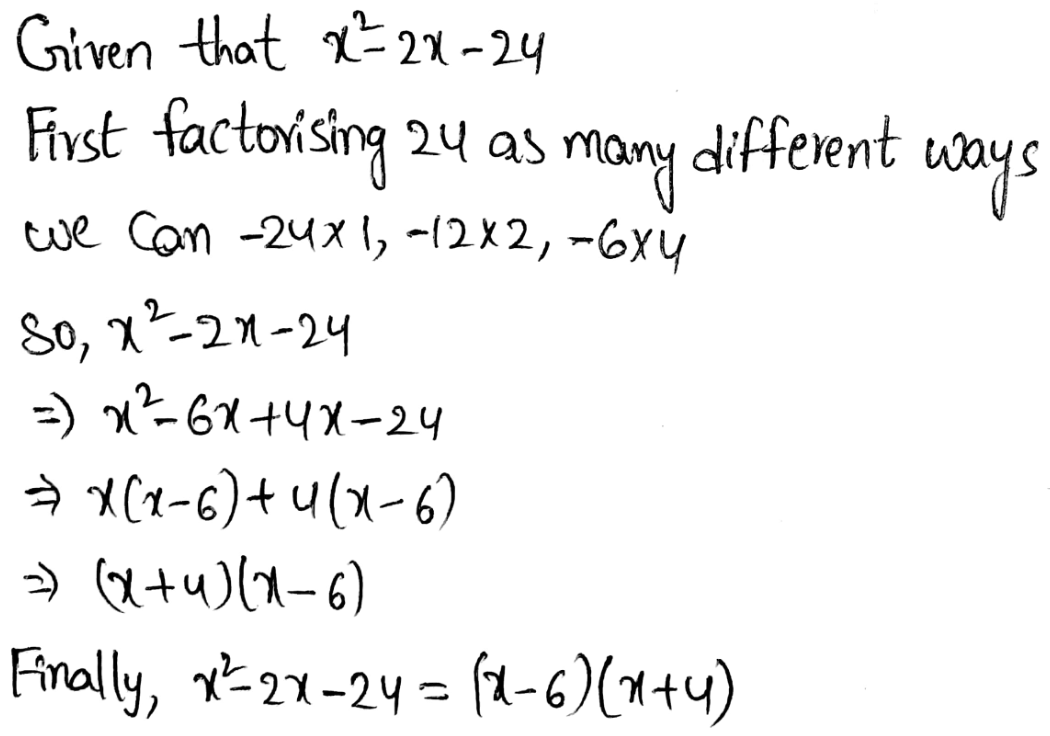 Given that x²-2x-24
First factorising 24 as many different ways
we Can -24x1, -12x2, -6x4
So, x²-2x-24
=) x²-6x+4x-24
⇒ x(x-6)+4(x-6)
=) (x+4)(x-6)
Finally, x²-2x-24 = (x-6)(x+4)